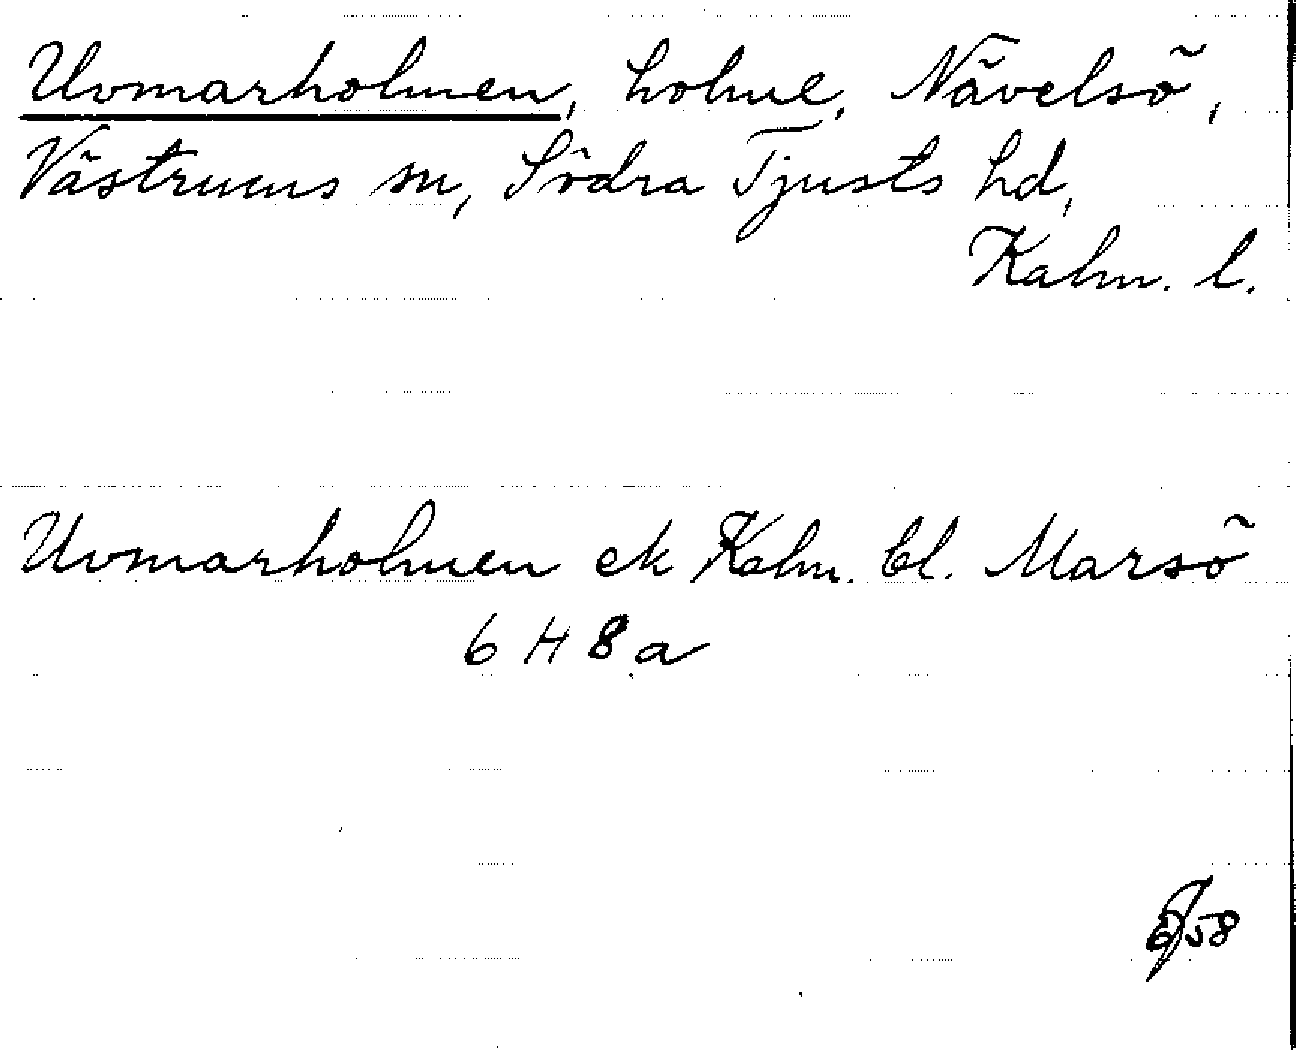 Uvmarholmen, holme, Nävelsö,
Västrums sn, Södra Tjusts hd,
Kalm. l.
Uvmarholmen ek Kalm. bl. Marsö
6 H 8 a